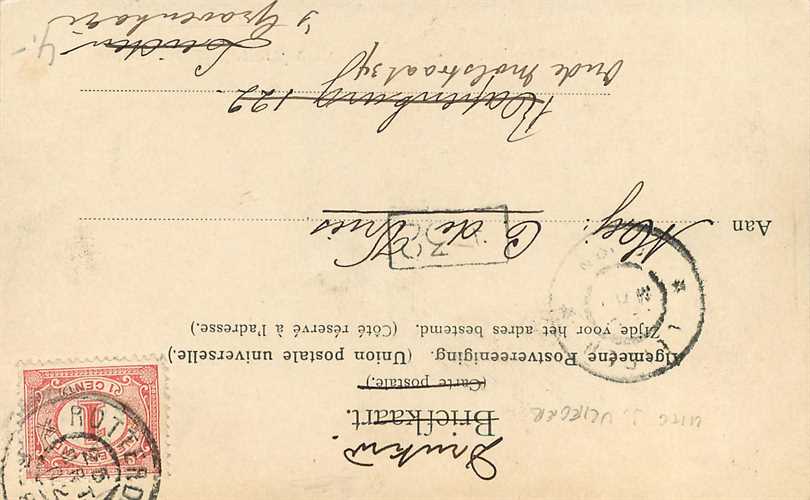 Drukw.
UITG J. VLIEGER
Briefkaart.
(Carte postale.)
Algemeene Postvereeniging. (Union postale universelle.)
Zijde voor het adres bestemd. (Côté réservé à l'adresse.)
1
1 CENT
38
Aan Mej: C. de Vries
Rapenburg 122.
Oude Molstraat 34
Leiden
's Gravenhage
4.-